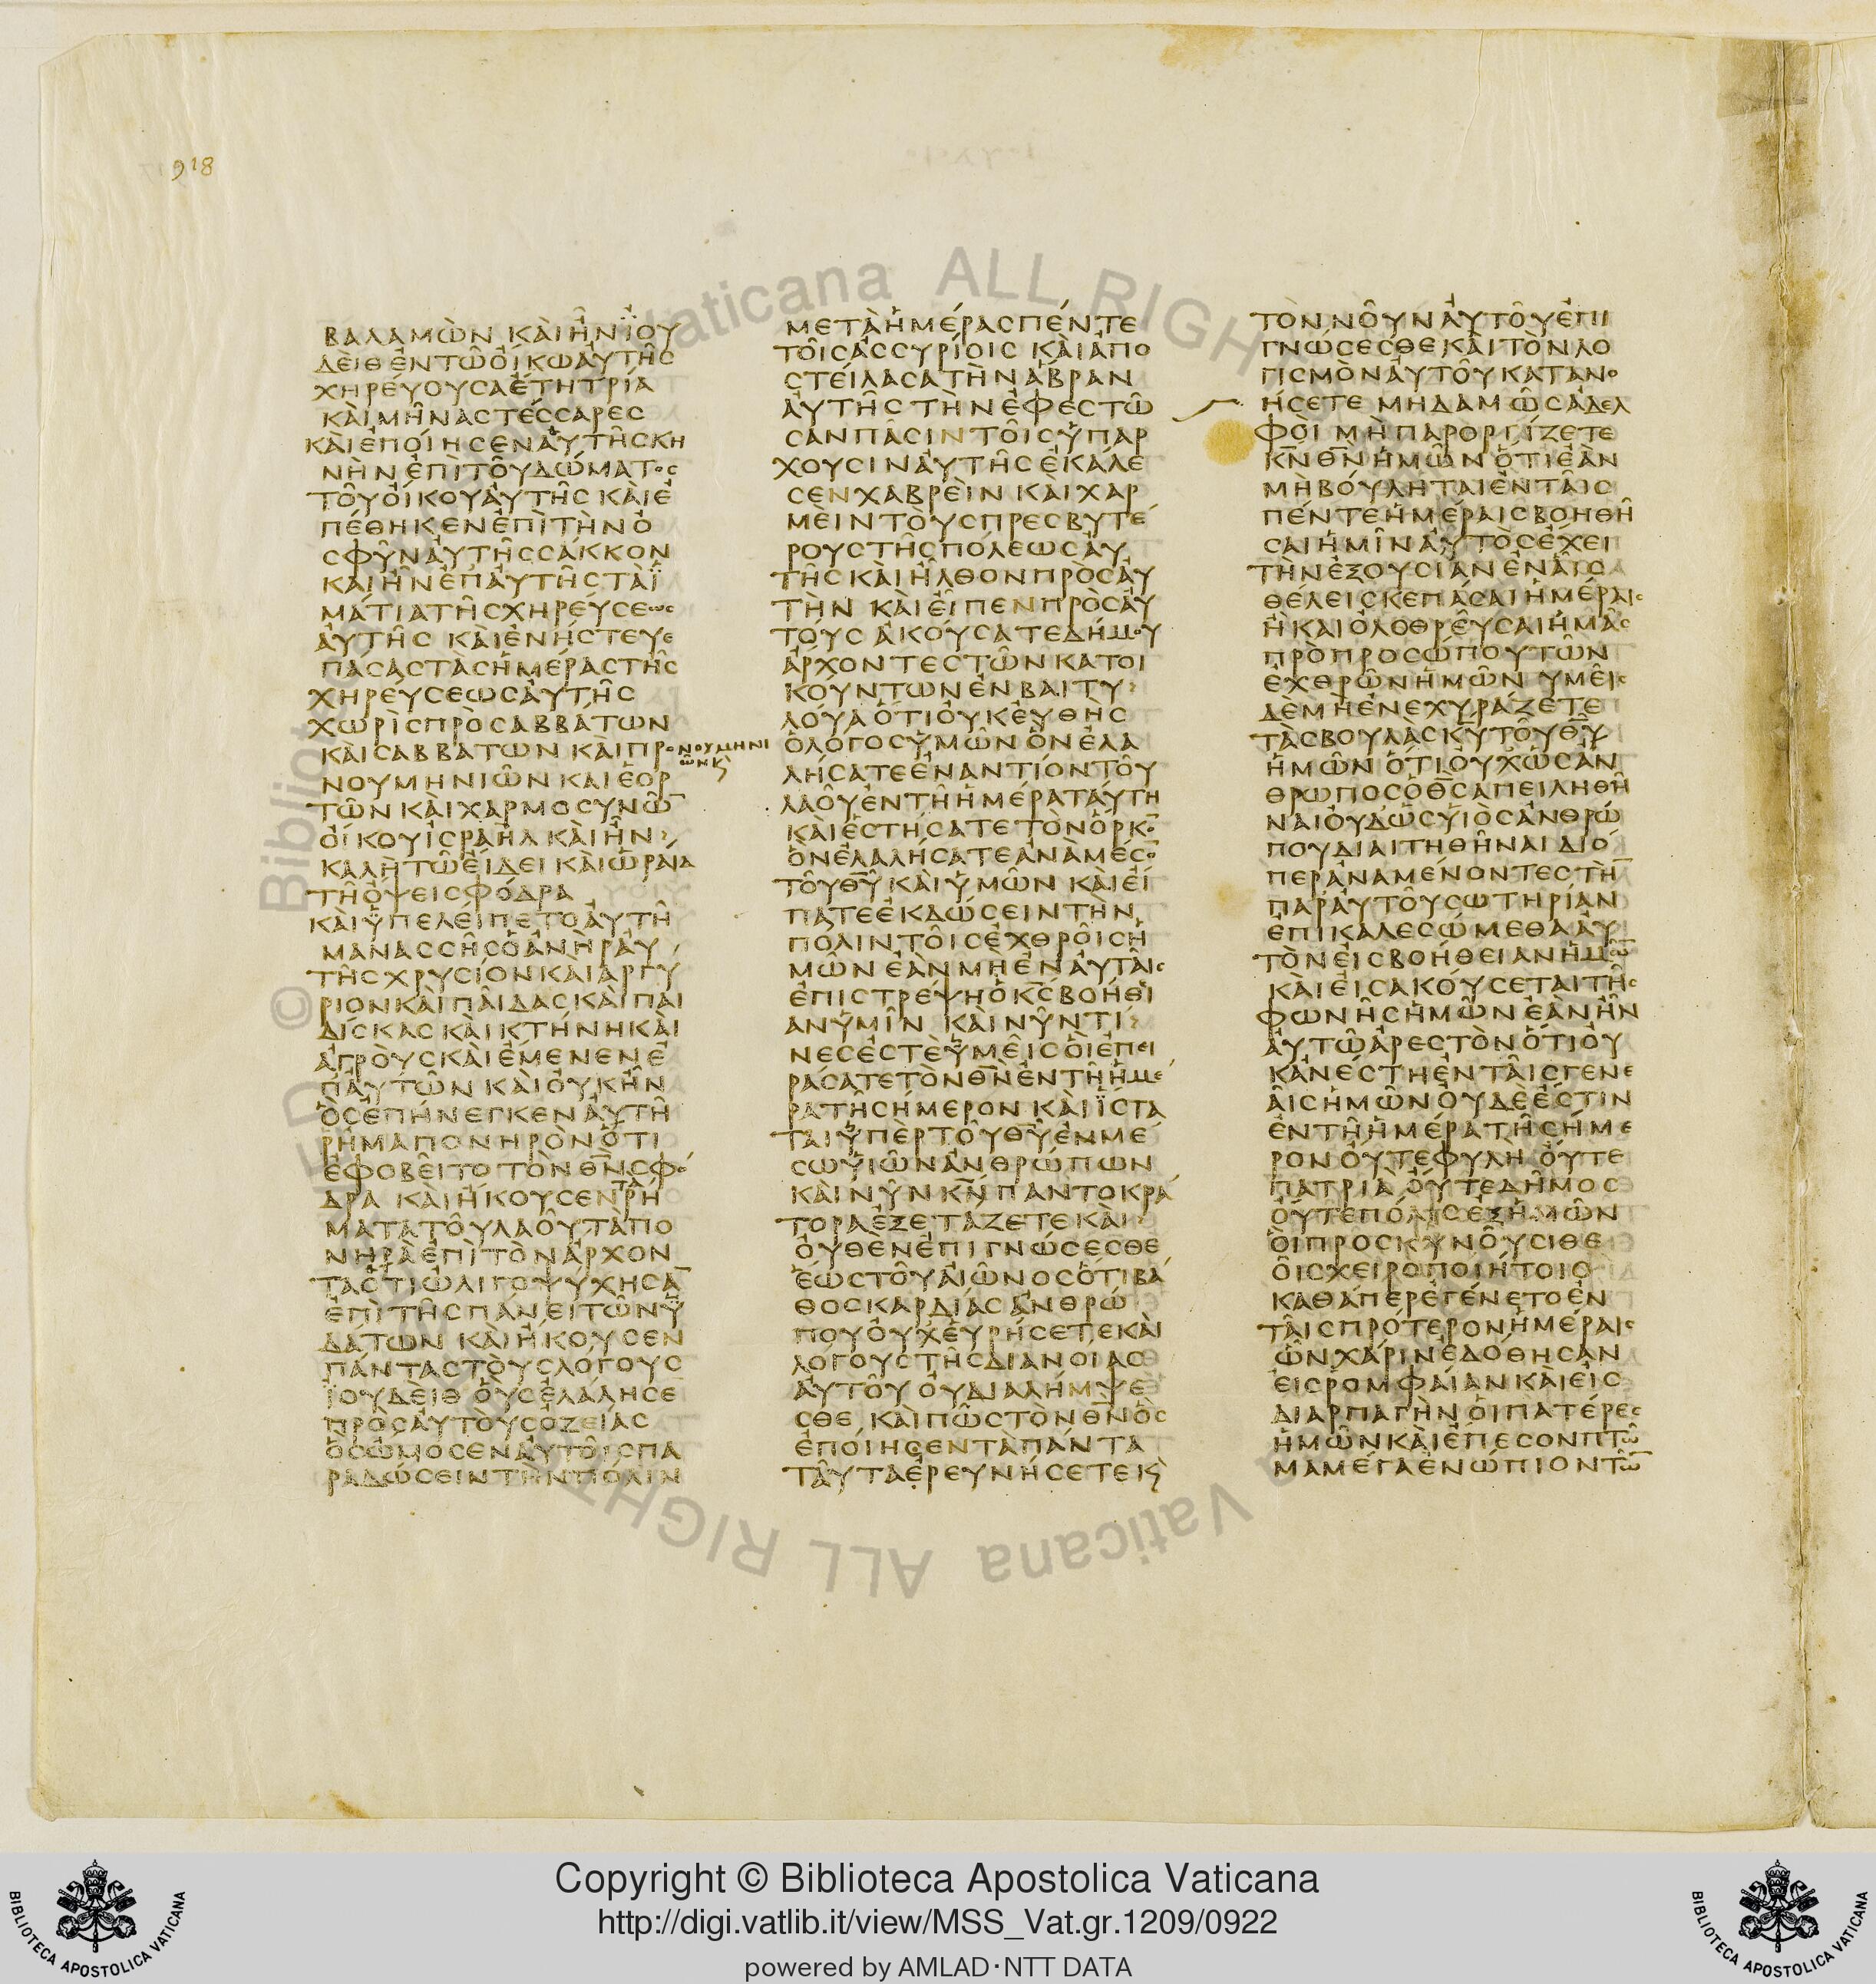 918
ΒΑΛΑΜΩΝ ΚΑΙΗΝΪΟΥ
ΔΕΙΘΕΝΤΩΟΙΚΩΑΥΤΗϹ
ΧΗΡΕΥΟΥϹΑΕΤΗΤΡΙΑ
ΚΑΙΜΗΝΑϹΤΕϹϹΑΡΕϹ
ΚΑΙΕΠΟΙΗϹΕΝΑΥΤΗϹΚΗ
ΝΗΝΕΠΙΤΟΥΔΩΜΑΤΟϹ
ΤΟΥΟΙΚΟΥΑΥΤΗϹ ΚΑΙΕ
ΠΕΘΗΚΕΝΕΠΙΤΗΝΟ
ϹΦΥΝΑΥΤΗϹϹΑΚΚΟΝ
ΚΑΙΗΝΕΠΑΥΤΗϹΤΑΪ
ΜΑΤΙΑΤΗϹΧΗΡΕΥϹΕΩϹ
ΑΥΤΗϹ ΚΑΙΕΝΗϹΤΕΥΕ
ΠΑϹΑϹΤΑϹΗΜΕΡΑϹΤΗϹ
ΧΗΡΕΥϹΕΩϹΑΥΤΗϹ
ΧΩΡΙϹΠΡΟϹΑΒΒΑΤΩΝ
ΚΑΙϹΑΒΒΑΤΩΝ ΚΑΙΠΡΟΝΟΥΜΗΝΙ
ΩΝΚϚ
ΝΟΥΜΗΝΙΩΝ ΚΑΙΕΟΡ
ΤΩΝ ΚΑΙΧΑΡΜΟϹΥΝΩ̅
ΟΙΚΟΥΙϹΡΑΗΛ ΚΑΙΗΝ>
ΚΑΛΗΤΩΕΙΔΕΙ ΚΑΙΩΡΑΙΑ
ΤΗΟΨΕΙϹΦΟΔΡΑ
ΚΑΙΥΠΕΛΕΙΠΕΤΟΑΥΤΗ
ΜΑΝΑϹϹΗϹΟΑΝΗΡΑΥ
ΤΗϹ ΧΡΥϹΙΟΝΚΑΙΑΡΓΥ
ΡΙΟΝΚΑΙΠΑΙΔΑϹΚΑΙΠΑΙ
ΔΙϹΚΑϹ ΚΑΙΚΤΗΝΗΚΑΙ
ΑΓΡΟΥϹΚΑΙΕΜΕΝΕΝΕ
ΠΑΥΤΩΝ ΚΑΙΟΥΚΗΝ
ΟϹΕΠΗΝΕΓΚΕΝΑΥΤΗ
ΡΗΜΑΠΟΝΗΡΟΝΟΤΙ
ΕΦΟΒΕΙΤΟΤΟΝΘ̅Ν̅ϹΦΟ
ΔΡΑ ΚΑΙΗΚΟΥϹΕΝΤΑΡΗ
ΜΑΤΑΤΟΥΛΑΟΥΤΑΠΟ
ΝΗΡΑΕΠΙΤΟΝΑΡΧΟΝ
ΤΑΟΤΙΩΛΙΓΟΨΥΧΗϹΑ̅
ΕΠΙΤΗϹΠΑΝΕΙΤΩΝΫ
ΔΑΤΩΝ ΚΑΙΗΚΟΥϹΕΝ
ΠΑΝΤΑϹΤΟΥϹΛΟΓΟΥϹ
ΪΟΥΔΕΙΘ ΟΥϹΕΛΑΛΗϹΕ
ΠΡΟϹΑΥΤΟΥϹΟΖΕΙΑϹ
ΟϹΩΜΟϹΕΝΑΥΤΟΙϹΠΑ
ΡΑΔΩϹΕΙΝΤΗΝΠΟΛΙΝ
ΜΕΤΑΗΜΕΡΑϹΠΕΝΤΕ
ΤΟΙϹΑϹϹΥΡΙΟΙϹ ΚΑΙΑΠΟ
ϹΤΕΙΛΑϹΑΤΗΝΑΒΡΑΝ
ΑΥΤΗϹ ΤΗΝΕΦΕϹΤΩ
ϹΑΝΠΑϹΙΝΤΟΙϹΥΠΑΡ
ΧΟΥϹΙΝΑΥΤΗϹΕΚΑΛΕ
ϹΕΝΧΑΒΡΕΙΝ ΚΑΙΧΑΡ
ΜΕΙΝΤΟΥϹΠΡΕϹΒΥΤΕ
ΡΟΥϹΤΗϹΠΟΛΕΩϹΑΥ
ΤΗϹ ΚΑΙΗΛΘΟΝΠΡΟϹΑΥ
ΤΗΝ ΚΑΙΕΙΠΕΝΠΡΟϹΑΥ
ΤΟΥϹ ΑΚΟΥϹΑΤΕΔΗΜΟΥ
ΑΡΧΟΝΤΕϹΤΩΝΚΑΤΟΙ
ΚΟΥΝΤΩΝΕΝΒΑΙΤΥ>
ΛΟΥΑ ΟΤΙΟΥΚΕΥΘΗϹ
ΟΛΟΓΟϹΥΜΩΝΟΝΕΛΑ
ΛΗϹΑΤΕΕΝΑΝΤΙΟΝΤΟΥ
ΛΑΟΥΕΝΤΗΗΜΕΡΑΤΑΥΤΗ
ΚΑΙΕϹΤΗϹΑΤΕΤΟΝΟΡΚΟ̅
ΟΝΕΛΑΛΗϹΑΤΕΑΝΑΜΕϹΟ̅
ΤΟΥΘ̅Υ̅ ΚΑΙΥΜΩΝ ΚΑΙΕΙ
ΠΑΤΕΕΚΔΩϹΕΙΝΤΗΝ
ΠΟΛΙΝΤΟΙϹΕΧΘΡΟΙϹΗ
ΜΩΝ ΕΑΝΜΗΕΝΑΥΤΑΙϹ
ΕΠΙϹΤΡΕΨΗΟΚ̅Ϲ̅ΒΟΗΘΙ
ΑΝΥΜΙΝ ΚΑΙΝΥΝΤΙ>
ΝΕϹΕϹΤΕΫΜΕΙϹΟΙΕΠΕΙ
ΡΑϹΑΤΕΤΟΝΘ̅Ν̅ΕΝΤΗΗΜΕ
ΡΑΤΗϹΗΜΕΡΟΝ ΚΑΙΪϹΤΑ
ΤΑΙΫΠΕΡΤΟΥΘ̅Υ̅ΕΝΜΕ
ϹΩΥΙΩΝΑΝΘΡΩΠΩΝ
ΚΑΙΝΥΝ Κ̅Ν̅ ΠΑΝΤΟΚΡΑ
ΤΟΡΑΕΞΕΤΑΖΕΤΕΚΑΙ>
ΟΥΘΕΝΕΠΙΓΝΩϹΕϹΘΕ
ΕΩϹΤΟΥΑΙΩΝΟϹΟΤΙΒΑ
ΘΟϹΚΑΡΔΙΑϹΑΝΘΡΩ
ΠΟΥΟΥΧΕΥΡΗϹΕΤΕΚΑΙ
ΛΟΓΟΥϹΤΗϹΔΙΑΝΟΙΑϹ
ΑΥΤΟΥ ΟΥΔΙΑΛΗΜΨΕ
ϹΘΕ ΚΑΙΠΩϹΤΟΝΘ̅Ν̅ΟϹ
ΕΠΟΙΗϹΕΝΤΑΠΑΝΤΑ
ΤΑΥΤΑΕΡΕΥΝΗϹΕΤΕΚϚ
ΤΟΝΝΟΥΝΑΥΤΟΥΕΠΙ
ΓΝΩϹΕϹΘΕ ΚΑΙΤΟΝΛΟ
ΓΙϹΜΟΝΑΥΤΟΥΚΑΤΑΝΟ
ΗϹΕΤΕ ΜΗΔΑΜΩϹΑΔΕΛ
ΦΟΙ ΜΗΠΑΡΟΡΓΙΖΕΤΕ
Κ̅Ν̅Θ̅Ν̅ΗΜΩΝ ΟΤΙΕΑΝ
ΜΗΒΟΥΛΗΤΑΙΕΝΤΑΙϹ
ΠΕΝΤΕΗΜΕΡΑΙϹΒΟΗΘΗ
ϹΑΙΗΜΙΝΑΥΤΟϹΕΧΕΙ
ΤΗΝΕΞΟΥϹΙΑΝΕΝΑΙϹ
ΘΕΛΕΙϹΚΕΠΑϹΑΙΗΜΕΡΑΙϹ
Η ΚΑΙΟΛΟΘΡΕΥϹΑΙΗΜΑϹ
ΠΡΟΠΡΟϹΩΠΟΥΤΩΝ
ΕΧΘΡΩΝΗΜΩΝ ΥΜΕΙϹ
ΔΕΜΗΕΝΕΧΥΡΑΖΕΤΕ
ΤΑϹΒΟΥΛΑϹΚ̅Υ̅ΤΟΥΘ̅Υ̅
ΗΜΩΝ ΟΤΙΟΥΧΩϹΑΝ
ΘΡΩΠΟϹΟΘ̅Ϲ̅ΑΠΕΙΛΗΘΗ
ΝΑΙΟΥΔΩϹΥΙΟϹΑΝΘΡΩ
ΠΟΥΔΙΑΙΤΗΘΗΝΑΙ ΔΙΟ
ΠΕΡΑΝΑΜΕΝΟΝΤΕϹΤΗ̅
ΠΑΡΑΥΤΟΥϹΩΤΗΡΙΑΝ
ΕΠΙΚΑΛΕϹΩΜΕΘΑΑΥ
ΤΟΝΕΙϹΒΟΗΘΕΙΑΝΗΜΩ̅
ΚΑΙΕΙϹΑΚΟΥϹΕΤΑΙΤΗϹ
ΦΩΝΗϹΗΜΩΝΕΑΝΗΝ
ΑΥΤΩΑΡΕϹΤΟΝΟΤΙΟΥ
ΚΑΝΕϹΤΗΕΝΤΑΙϹΓΕΝΕ
ΑΙϹΗΜΩΝΟΥΔΕΕϹΤΙΝ
ΕΝΤΗΗΜΕΡΑΤΗϹΗΜΕ
ΡΟΝ ΟΥΤΕΦΥΛΗ ΟΥΤΕ
ΠΑΤΡΙΑ ΟΥΤΕΔΗΜΟϹ
ΟΥΤΕΠΟΛΙϹΕΞΗΜΩΝ
ΟΙΠΡΟϹΚΥΝΟΥϹΙΘΕ
ΟΙϹΧΕΙΡΟΠΟΙΗΤΟΙϹ
ΚΑΘΑΠΕΡΕΓΕΝΕΤΟΕΝ
ΤΑΙϹΠΡΟΤΕΡΟΝΗΜΕΡΑΙϹ
ΩΝΧΑΡΙΝΕΔΟΘΗϹΑΝ
ΕΙϹΡΟΜΦΑΙΑΝΚΑΙΕΙϹ
ΔΙΑΡΠΑΓΗΝ ΟΙΠΑΤΕΡΕϹ
ΗΜΩΝΚΑΙΕΠΕϹΟΝΠΤΩ
ΜΑΜΕΓΑΕΝΩΠΙΟΝΤΩ̅
Copyright © Biblioteca Apostolica Vaticana
http://digi.vatlib.it/view/MSS_Vat.gr.1209/0922
powered by AMLAD·NTT DATA
BIBLIOTECA APOSTOLICA VATICANA
BIBLIOTECA APOSTOLICA VATICANA
© Biblioteca Apostolica Vaticana ALL RIGHTS RESERVED